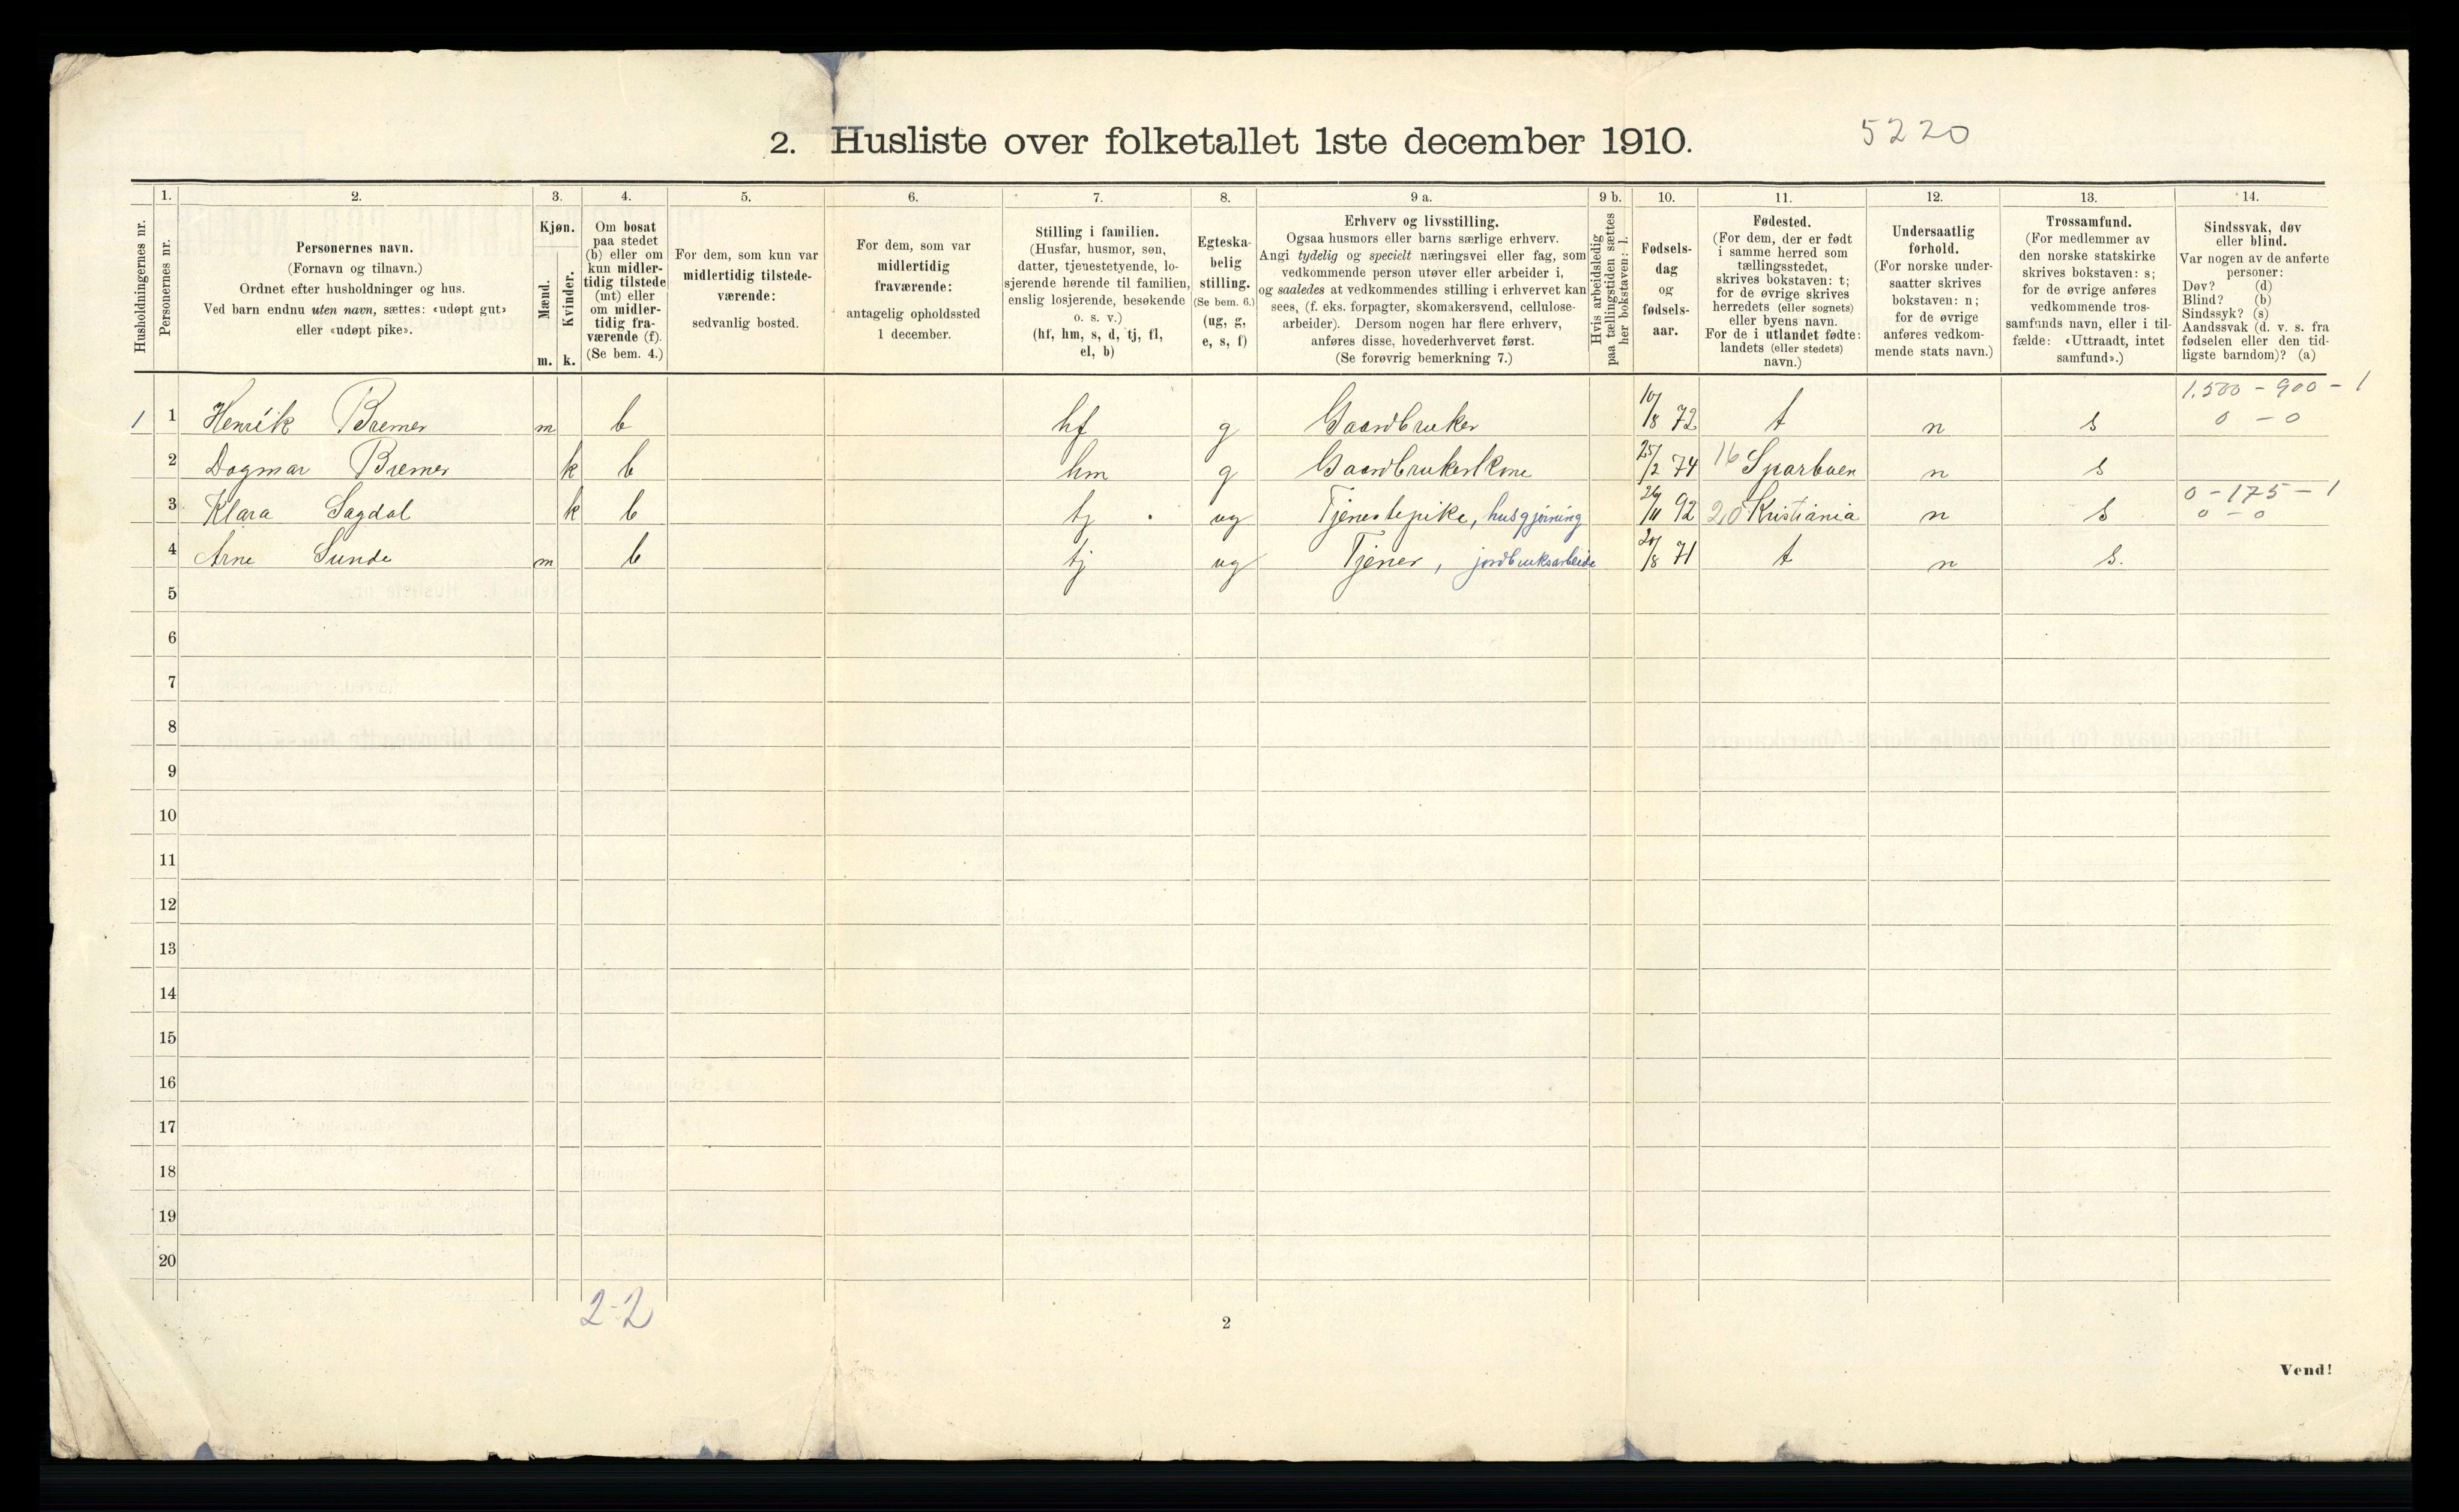 2. Husliste over folketallet 1ste december 1910.
5220
Husholdningernes nr.
1.
Personernes nr.
2.
Personernes navn.
(Fornavn og tilnavn.)
Ordnet efter husholdninger og hus.
Ved barn endnu uten navn, sættes: «udøpt gut»
eller «udøpt pike».
3.
Kjøn.
Mænd.
Kvinder.
m. k.
4.
Om bosat
paa stedet
(b) eller om
kun midler-
tidig tilstede
(mt) eller
om midler-
tidig fra-
værende (f).
(Se bem. 4.)
5.
For dem, som kun var
midlertidig tilstede-
værende:
sedvanlig bosted.
6.
For dem, som var
midlertidig
fraværende:
antagelig opholdssted
1 december.
7.
Stilling i familien.
(Husfar, husmor, søn,
datter, tjenestetyende, lo-
sjerende hørende til familien,
enslig losjerende, besøkende
o. s. v.)
(hf, hm, s, d, tj, fl,
el, b)
8.
Egteska-
belig
stilling.
(Se bem. 6.)
(ug, g,
e, s, f)
9 a.
Erhverv og livsstilling.
Ogsaa husmors eller barns særlige erhverv.
Angi tydelig og specielt næringsvei eller fag, som
vedkommende person utøver eller arbeider i,
og saaledes at vedkommendes stilling i erhvervet kan
sees, (f. eks. forpagter, skomakersvend, cellulose-
arbeider). Dersom nogen har flere erhverv,
anføres disse, hovederhvervet først.
(Se forøvrig bemerkning 7.)
9 b.
Hvis arbeidsledig
paa tællingstiden sættes
her bokstaven: l.
10.
Fødsels-
dag
og
fødsels-
aar.
11.
Fødested.
(For dem, der er født
i samme herred som
tællingsstedet,
skrives bokstaven: t;
for de øvrige skrives
herredets (eller sognets)
eller byens navn.
For de i utlandet fødte:
landets (eller stedets)
navn.)
12.
Undersaatlig
forhold.
(For norske under-
saatter skrives
bokstaven: n;
for de øvrige
anføres vedkom-
mende stats navn.)
13.
Trossamfund.
(For medlemmer av
den norske statskirke
skrives bokstaven: s;
for de øvrige anføres
vedkommende tros-
samfunds navn, eller i til-
fælde: «Uttraadt, intet
samfund».)
14.
Sindssvak, døv
eller blind.
Var nogen av de anførte
personer:
Døv? (d)
Blind? (b)
Sindssyk? (s)
Aandssvak (d. v. s. fra
fødselen eller den tid-
ligste barndom)? (a)
1.500 - 900 - 1
1 1 Henrik Bremer m b hf g Gaardbruker 10/8 72 t n s 0 - 0
2 Dagmar Bremer k b hm g Gaardbrukerkone 25/2 74 16 Sparbuen n s
0 - 175 - 1
3 Klara Sagdal k b tj ug Tjenestepike, husgjørning 26/11 92 20 Kristiania n s 0 - 0
4 Arne Sunde m b tj ug Tjener, jordbruksarbeide 20/8 71 t n s.
5
6
7
8
9
10
11
12
13
14
15
16
17
18
19
20
2-2
2
Vend!